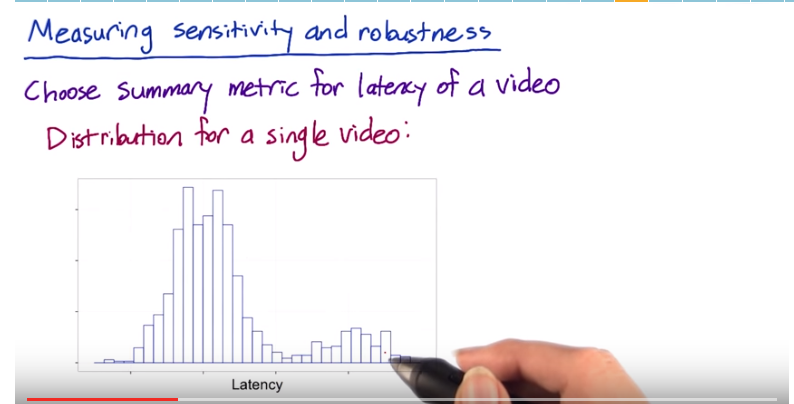 Measuring sensitivity and robustness
Choose summary metric for latency of a video
Distribution for a single video:
Latency